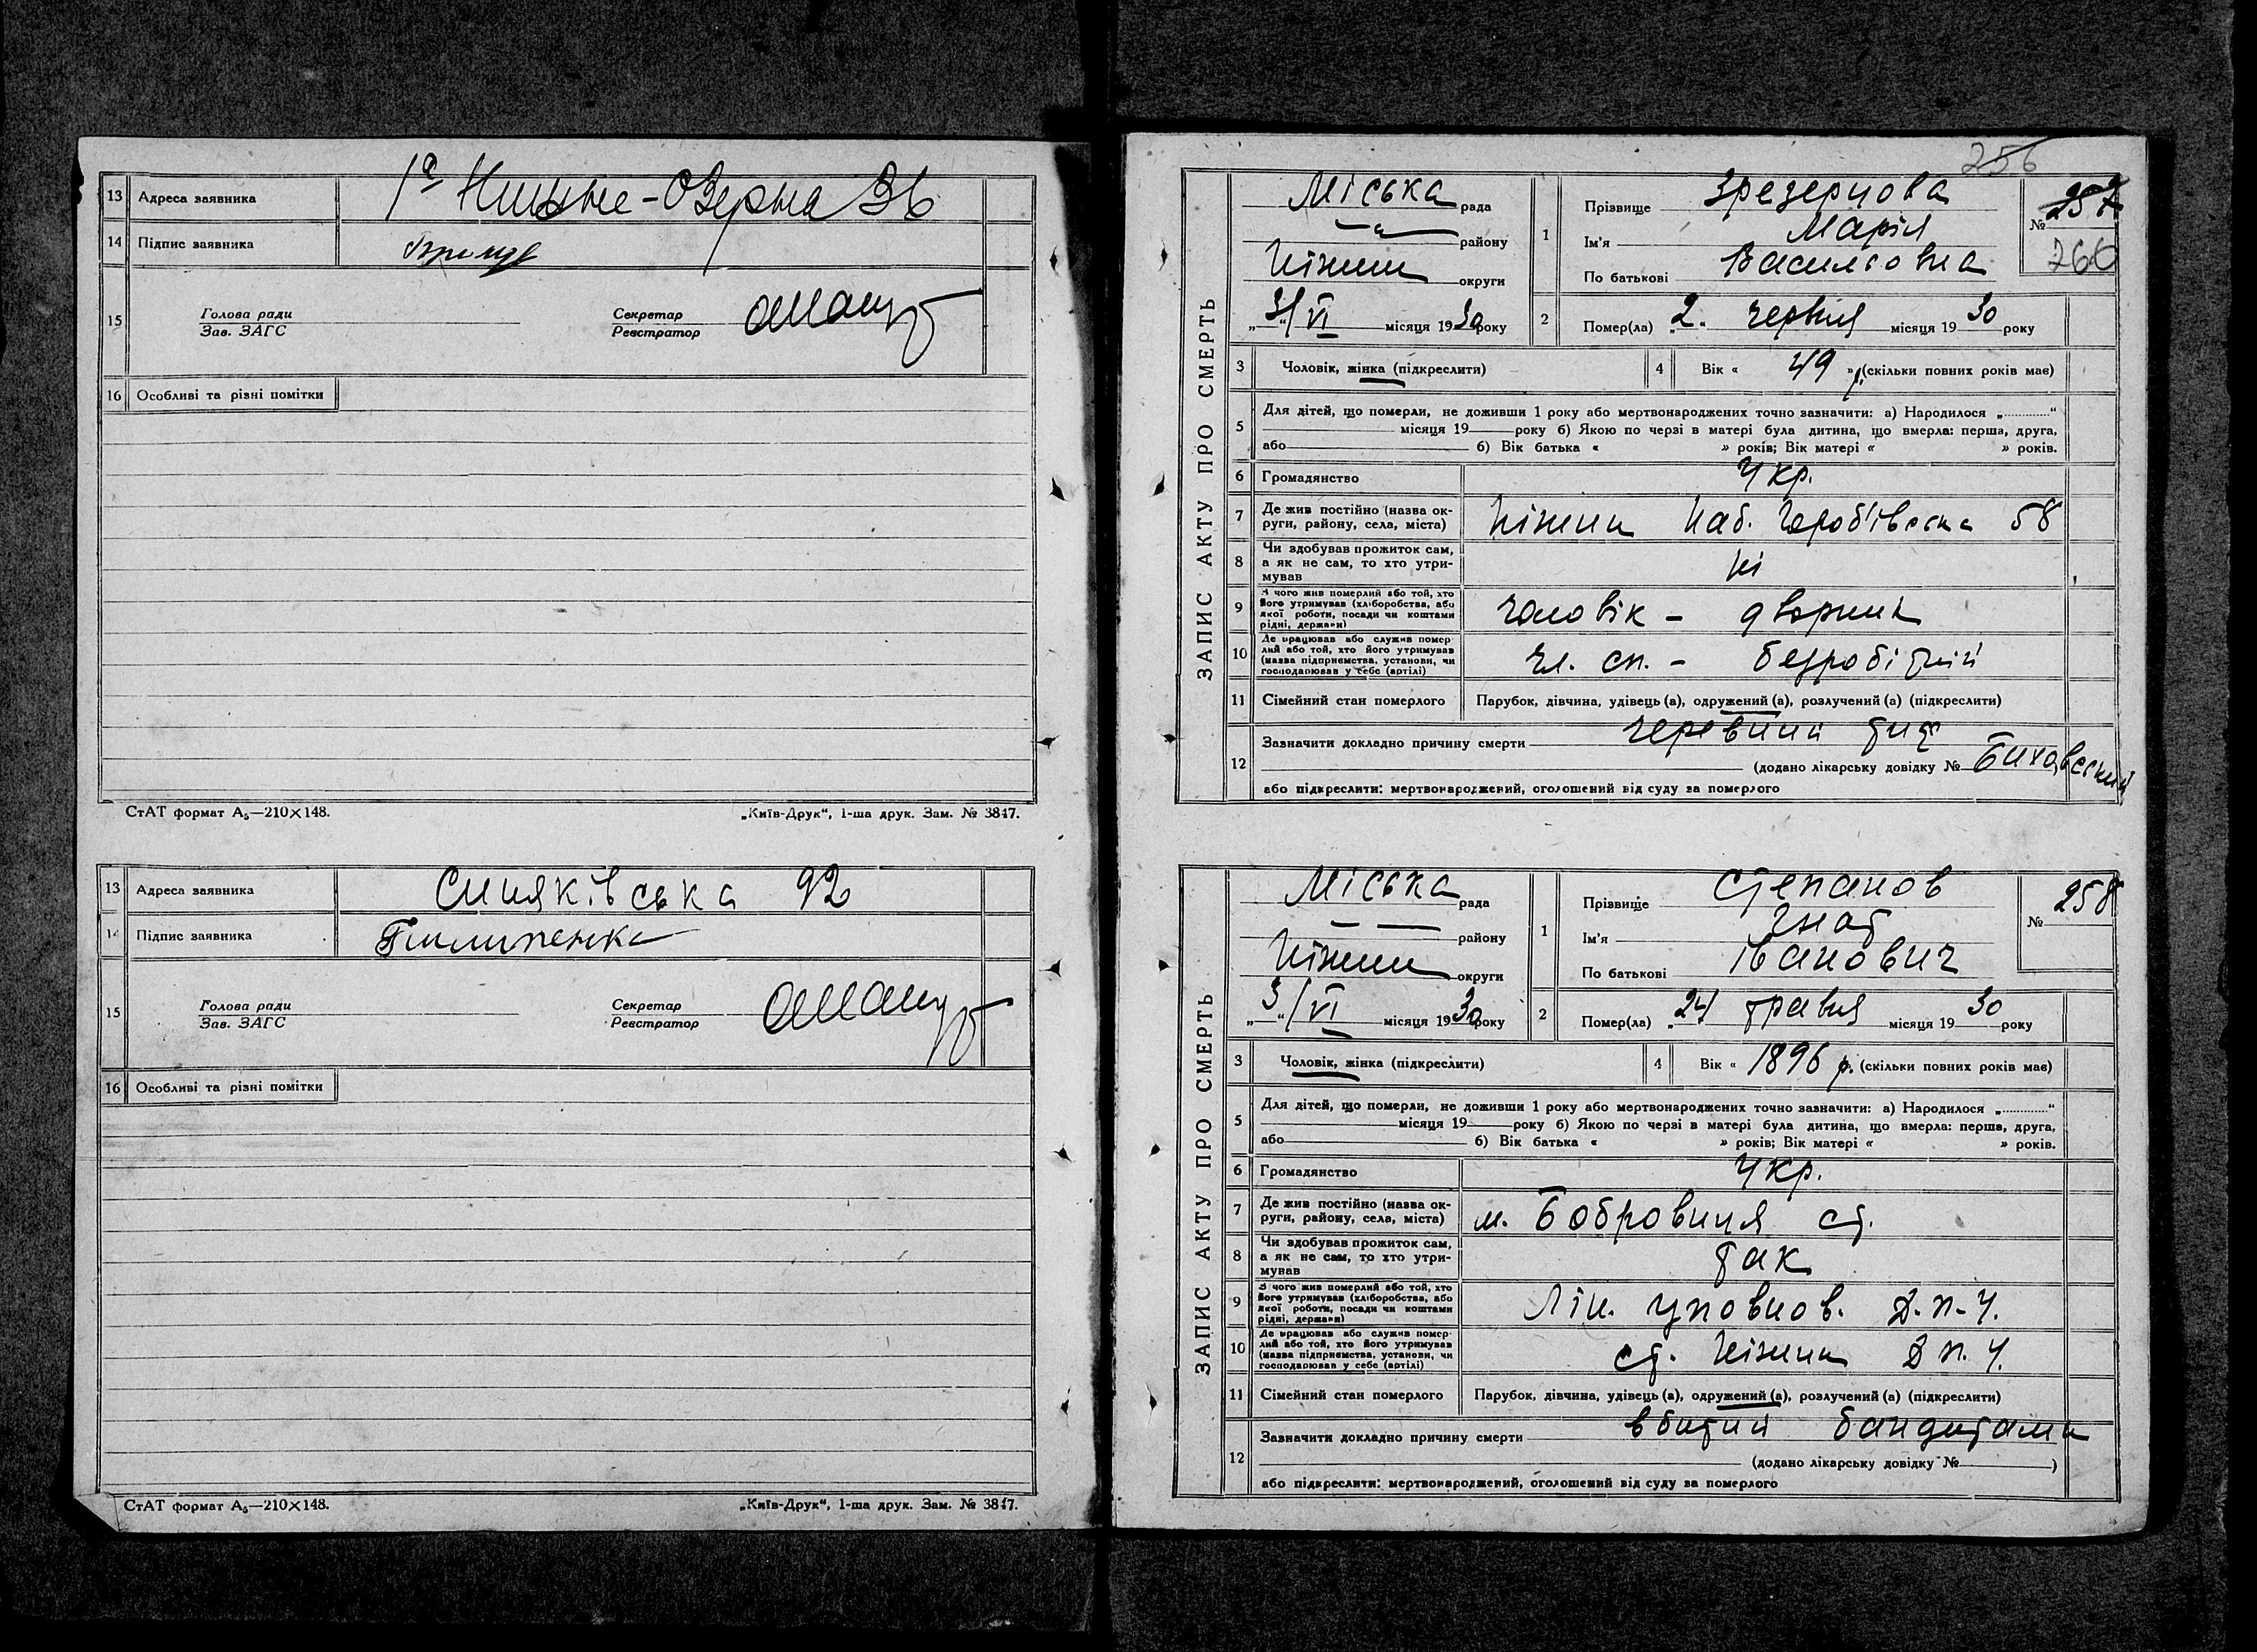 13 Адреса заявника 1а Нижнє-Озерна 36
14 Підпис заявника
15 Голова ради Секретар
Зав. ЗАГС Реєстратор
16 Особливі та різні помітки
СтАТ формат А₅—210×148. „Київ-Друк“, 1-ша друк. Зам. № 3847.
13 Адреса заявника Синяківська 92
14 Підпис заявника Пилипенко
15 Голова ради Секретар
Зав. ЗАГС Реєстратор
16 Особливі та різні помітки
СтАТ формат А₅—210×148. „Київ-Друк“, 1-ша друк. Зам. № 3847.
256
ЗАПИС АКТУ ПРО СМЕРТЬ
Міська рада
району
Ніжин округи
„3“/VI місяця 1930 року
1 Прізвище
Ім'я Марія
По батькові Василівна
№ 257
260
2 Помер(ла) „2. червня місяця 1930 року
3 Чоловік, жінка (підкреслити)
4 Вік « 49 » р. (скільки повних років має)
5 Для дітей, що померли, не доживши 1 року або мертвонароджених точно зазначити: а) Народилося „............“
місяця 19 року б) Якою по черзі в матері була дитина, що вмерла: перша, друга,
або б) Вік батька « » років; Вік матері « » років.
6 Громадянство Укр.
7 Де жив постійно (назва округи, району, села, міста) Ніжин Наб. 58
8 Чи здобував прожиток сам, а як не сам, то хто утримував ні
9 З чого жив померлий або той, хто його утримував (хліборобства, або якої роботи, посади чи коштами рідні, держави) чоловік - дворник
10 Де працював або служив померлий або той, хто його утримував (назва підприємства, установи, чи господарював у себе (артілі) чл. сп. - безробітній
11 Сімейний стан померлого Парубок, дівчина, удівець (а), одружений (а), розлучений (а) (підкреслити)
12 Зазначити докладно причину смерти черевний тиф
(додано лікарську довідку №
або підкреслити: мертвонароджений, оголошений від суду за померлого
ЗАПИС АКТУ ПРО СМЕРТЬ
Міська рада
району
Ніжин округи
„3“/VI місяця 1930 року
1 Прізвище Степанов
Ім'я Гнат
По батькові Іванович
№ 258
2 Помер(ла) „24 травня місяця 1930 року
3 Чоловік, жінка (підкреслити)
4 Вік « 1896 р. (скільки повних років має)
5 Для дітей, що померли, не доживши 1 року або мертвонароджених точно зазначити: а) Народилося „............“
місяця 19 року б) Якою по черзі в матері була дитина, що вмерла: перша, друга,
або б) Вік батька « » років; Вік матері « » років.
6 Громадянство Укр.
7 Де жив постійно (назва округи, району, села, міста) м. Бобровиця ст.
8 Чи здобував прожиток сам, а як не сам, то хто утримував так
9 З чого жив померлий або той, хто його утримував (хліборобства, або якої роботи, посади чи коштами рідні, держави) Лін. уповнов. Д.П.У.
10 Де працював або служив померлий або той, хто його утримував (назва підприємства, установи, чи господарював у себе (артілі) ст. Ніжин Д.П.У.
11 Сімейний стан померлого Парубок, дівчина, удівець (а), одружений (а), розлучений (а) (підкреслити)
12 Зазначити докладно причину смерти вбитий бандитами
(додано лікарську довідку № )
або підкреслити: мертвонароджений, оголошений від суду за померлого